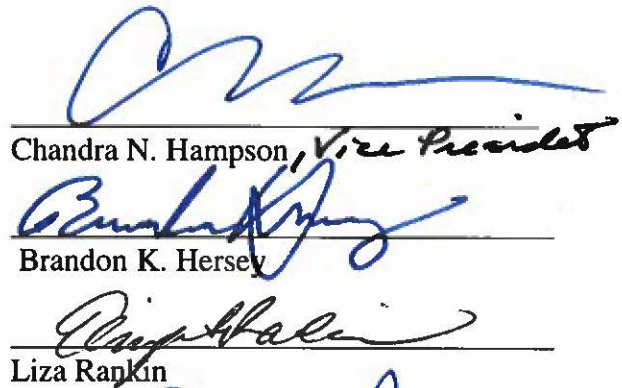 Chandra N. Hampson, Vice President
Brandon K. Hersey
Liza Rankin